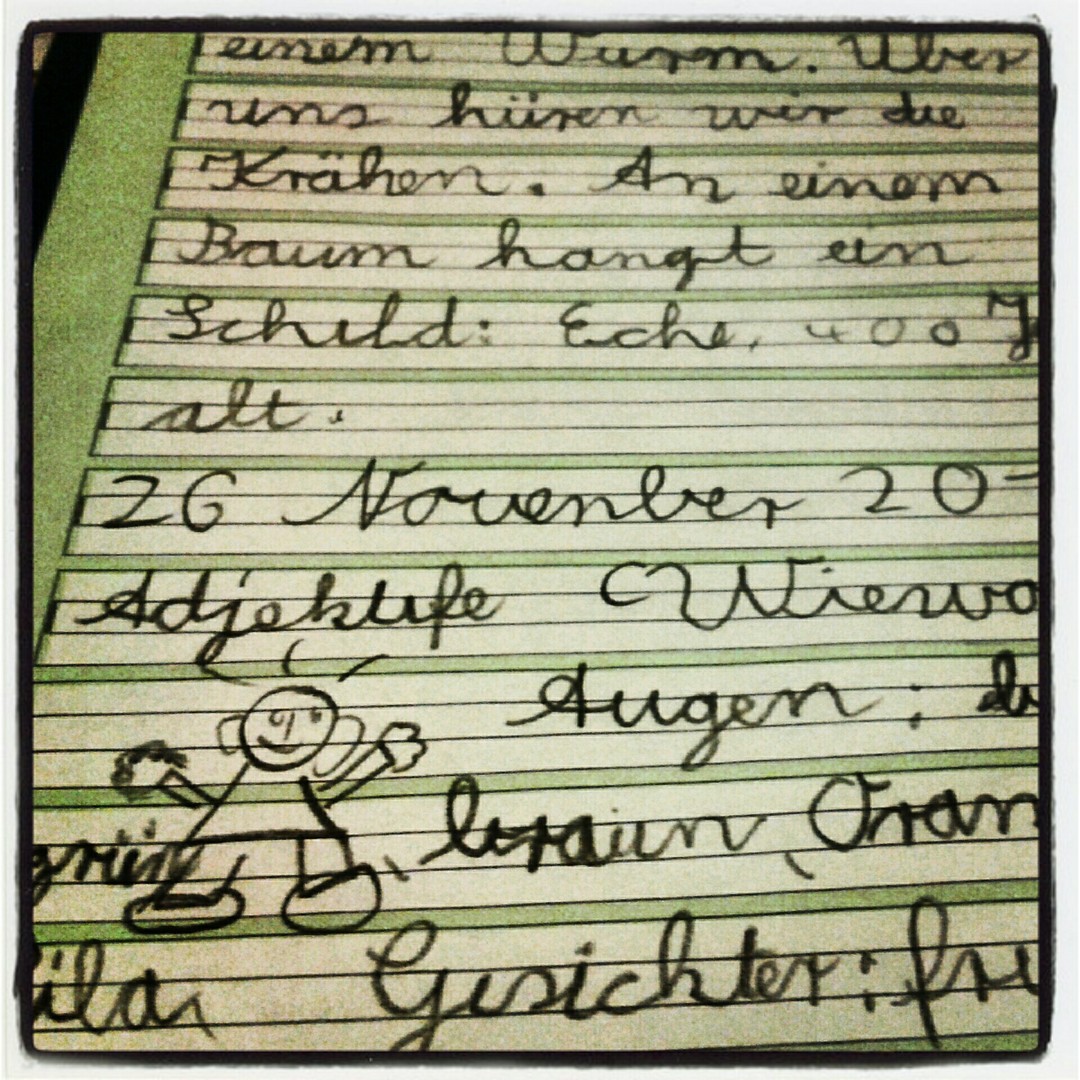 einem Wurm. Über
uns hüren wir die
Krähen. An einem
Baum hangt ein
Schild: Eche, 400 J
alt.
26 November 20
Adjektife (Wiewo
Augen: b
grün, braun, Oran
lila, Gesichter: fre